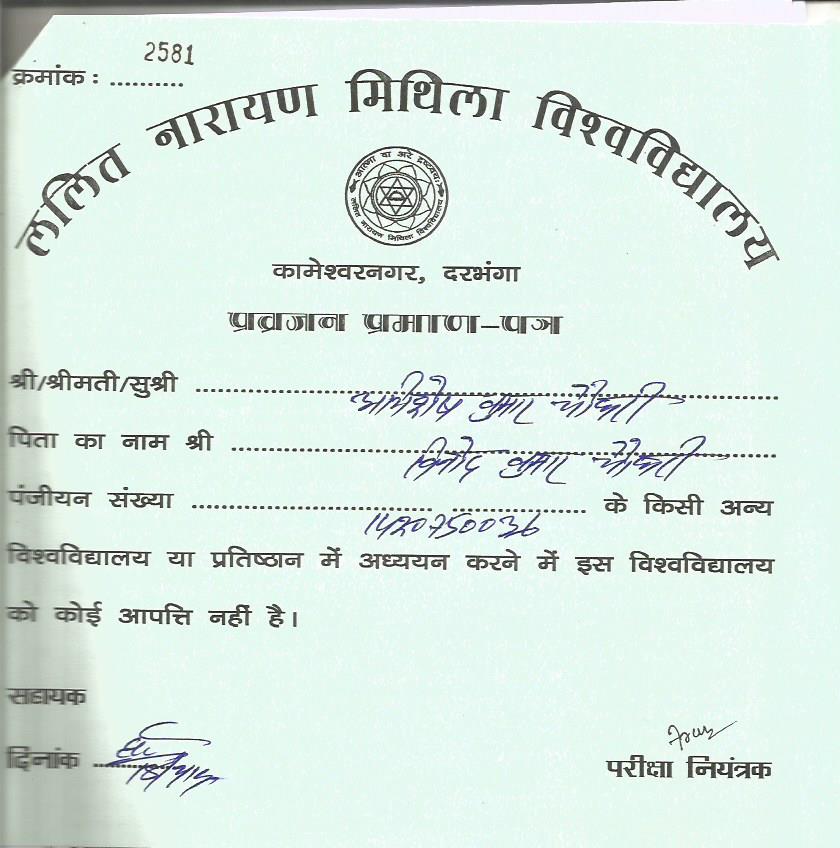 2581
क्रमांक : ..........
ललित नारायण मिथिला विश्वविद्यालय
आत्मा वा अरे द्रष्टव्यः
ललित नारायण मिथिला विश्वविद्यालय
कामेश्वरनगर, दरभंगा
प्रव्रजन प्रमाण-पत्र
श्री/श्रीमती/सुश्री अभिशेष कुमार चौधरी
पिता का नाम श्री विनोद कुमार चौधरी
पंजीयन संख्या 1420750036 के किसी अन्य
विश्वविद्यालय या प्रतिष्ठान में अध्ययन करने में इस विश्वविद्यालय
को कोई आपत्ति नहीं है।
सहायक
दिनांक
परीक्षा नियंत्रक